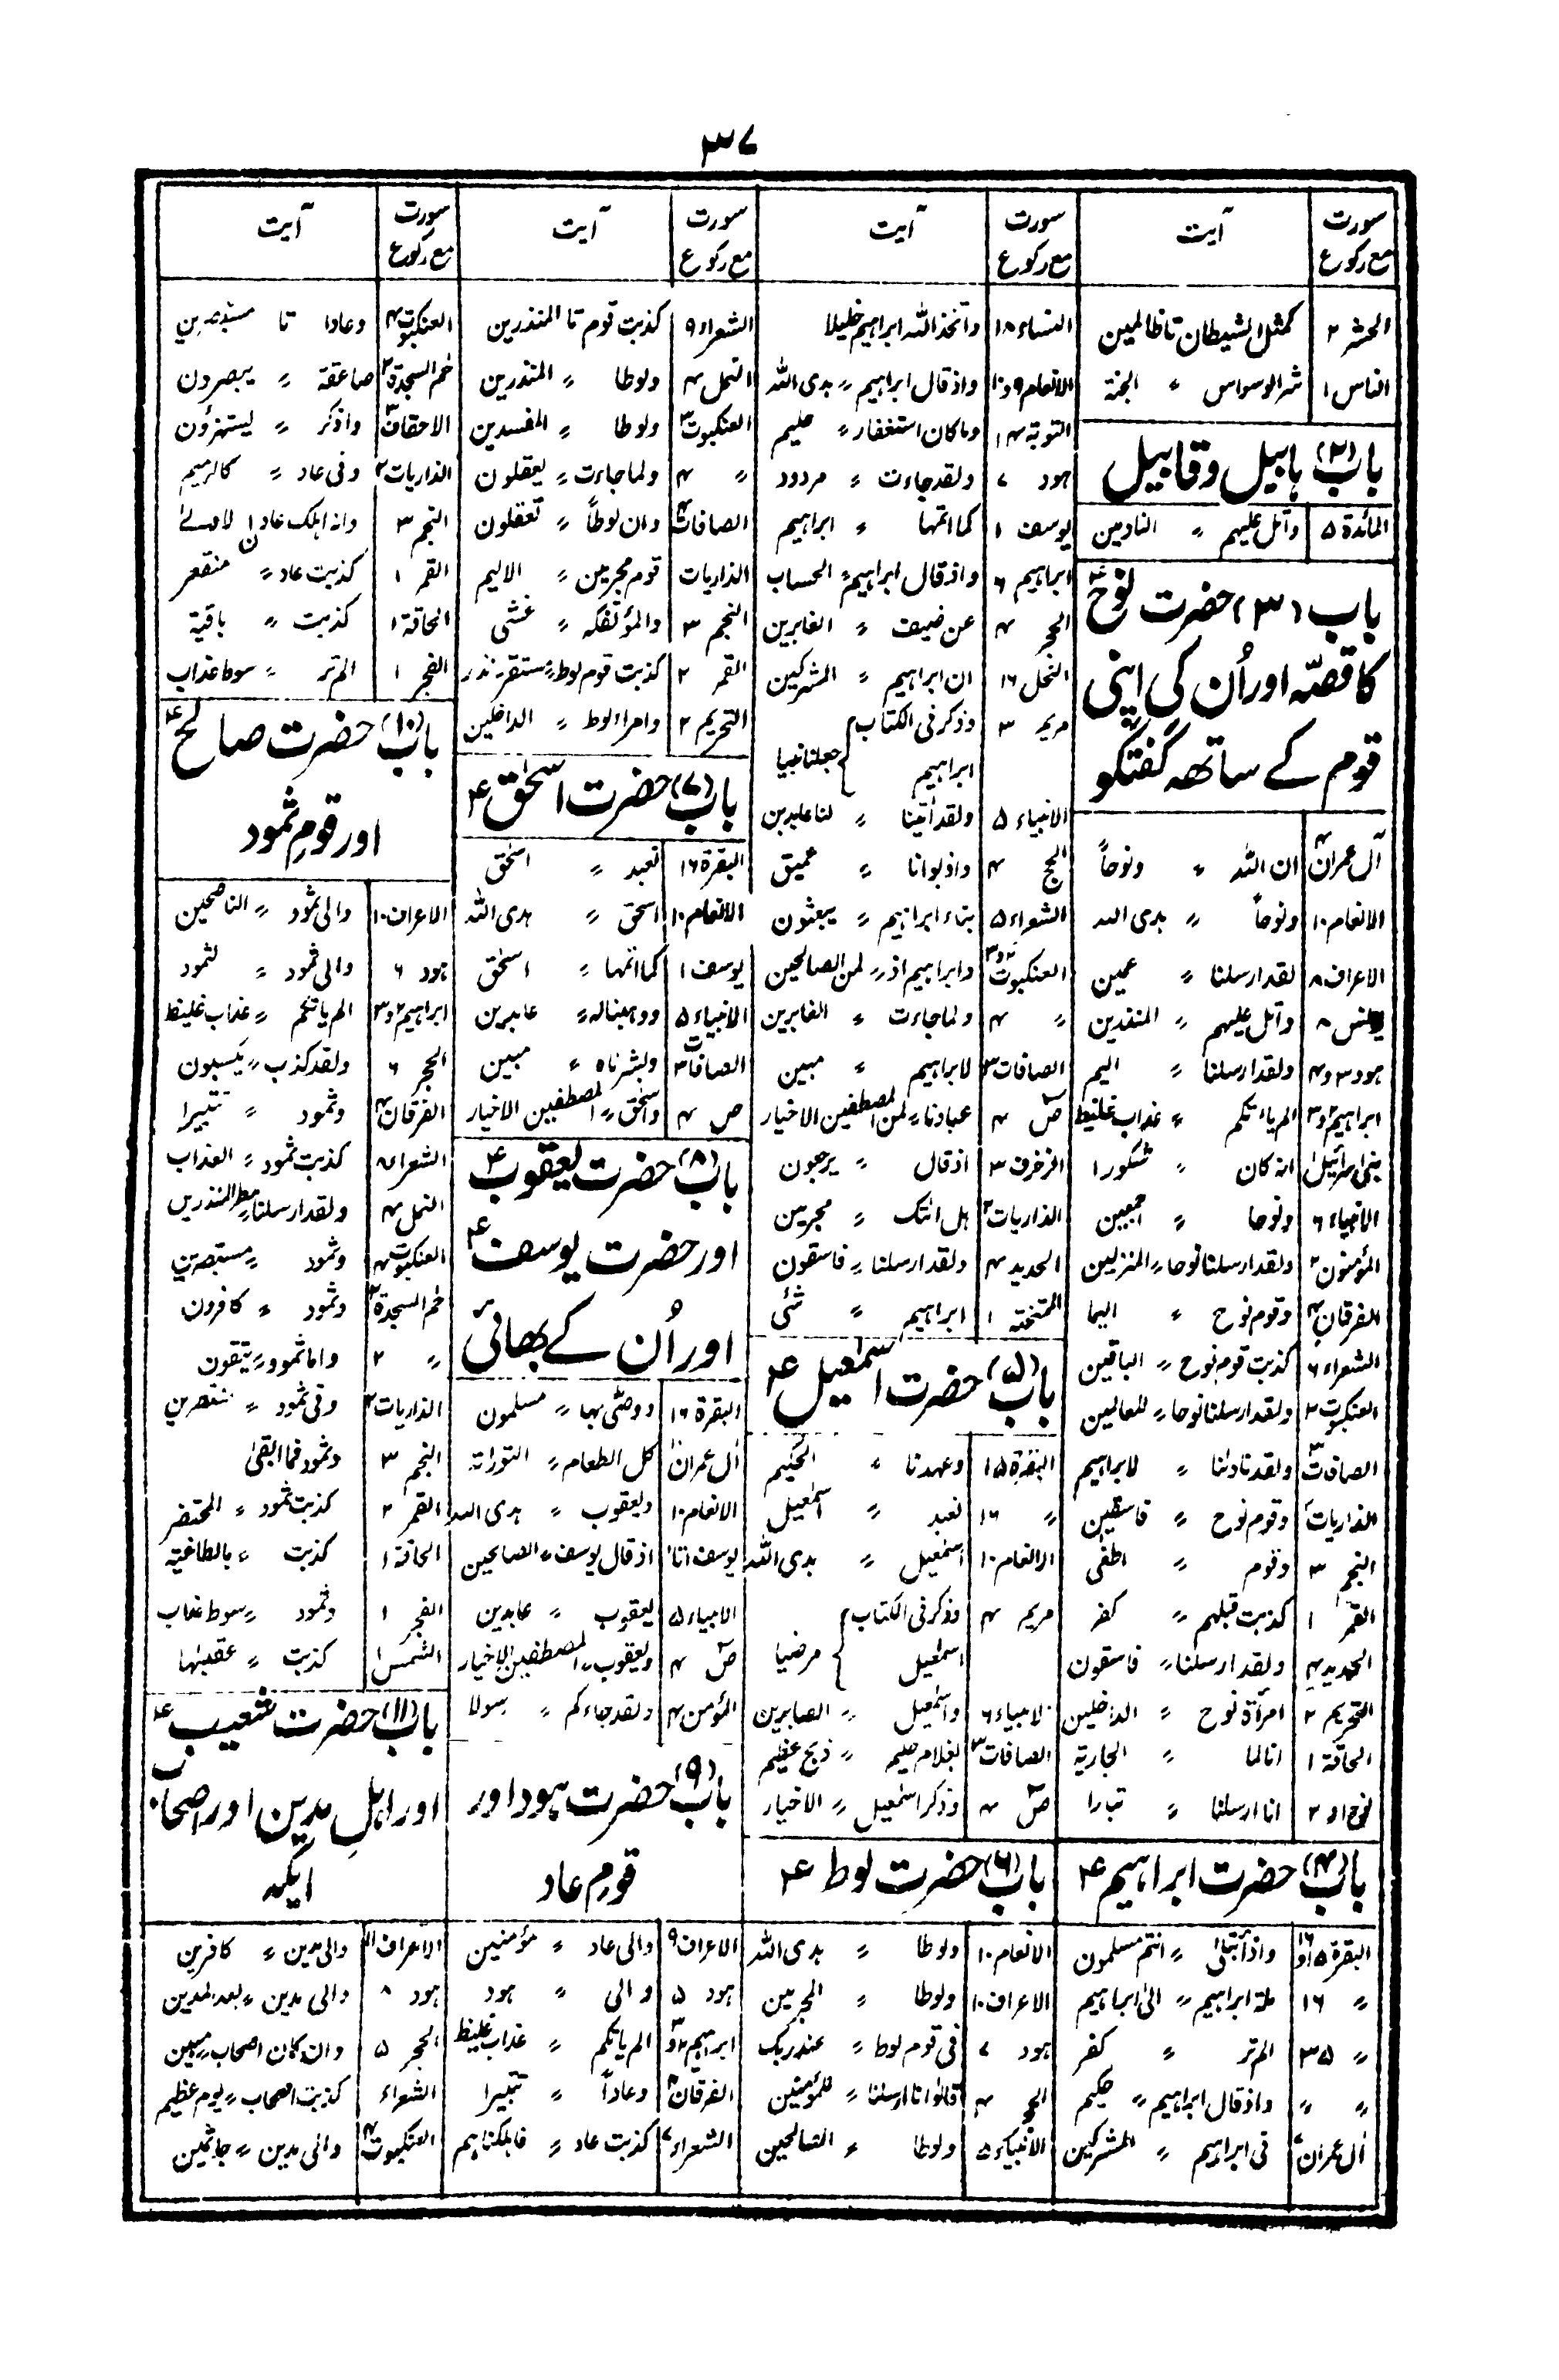 ۳۷
سورت مع رکوع | آیت
الحشر ۲ | کمثل الشیطان تا ظالمین
الناس ۱ | شر الوسواس 〃 الجنة
باب (۲) ہابیل وقابیل
المائدة ۵ | واتل علیہم 〃 النادمین
باب (۳) حضرت نوحؑ
کا قصّہ اور اُن کی اپنی
قوم کے ساتھ گفتگو
آل عمران ۴ | ان اللہ 〃 ونوحاً
الانعام ۱۰ | ونوحاً 〃 ہدی اللہ
الاعراف ۸ | لقد ارسلنا 〃 عمین
یونس ۸ | واتل علیہم 〃 المنذرین
ہود ۳ و ۴ | ولقد ارسلنا 〃 الیم
ابراہیم ۲ و ۳ | الم یاتکم 〃 عذاب غلیظ
بنی اسرائیل ۱ | انہ کان 〃 شکورا
الانبیاء ۶ | ونوحا 〃 اجمعین
المؤمنون ۲ | ولقد ارسلنا نوحا 〃 المنزلین
الفرقان ۴ | وقوم نوح 〃 الیما
الشعراء ۶ | کذبت قوم نوح 〃 الباقین
العنکبوت ۲ | ولقد ارسلنا نوحا 〃 للعالمین
الصافات ۳ | ولقد نادٰنا 〃 لابراہیم
الذاریات ۲ | وقوم نوح 〃 فاسقین
النجم ۳ | وقوم 〃 اطغٰی
القمر ۱ | کذبت قبلہم 〃 کفر
الحدید ۴ | ولقد ارسلنا 〃 فاسقون
التحریم ۲ | امرأة نوح 〃 الداخلین
الحاقة ۱ | انا لما 〃 الجاریة
نوح ۱ و ۲ | انا ارسلنا 〃 تبارا
باب (۴) حضرت ابراہیمؑ
البقرة ۱۵ و ۱۶ | واذ ابتلیٰ 〃 انتم مسلمون
〃 ۱۶ | ملة ابراہیم 〃 الیٰ ابراہیم
〃 ۳۵ | الم تر 〃 کفر
〃 〃 | واذ قال ابراہیم 〃 حکیم
اٰل عمران ۷ | فی ابراہیم 〃 المشرکین
سورت مع رکوع | آیت
النساء ۱۸ | واتخذ اللہ ابراہیم خلیلا
الانعام ۹ و ۱۰ | واذ قال ابراہیم 〃 ہدی اللہ
التوبة ۱۴ | وما کان استغفار 〃 حلیم
ہود ۷ | ولقد جاءت 〃 مردود
یوسف ۱ | کما اتمہا 〃 ابراہیم
ابراہیم ۶ | واذ قال ابراہیم 〃 الحساب
الحجر ۴ | عن ضیف 〃 الغابرین
النحل ۱۶ | ان ابراہیم 〃 المشرکین
مریم ۳ | وذکر فی الکتاب ابراہیم } جعلنا نبیا
الانبیاء ۵ | ولقد اٰتینا 〃 لنا عابدین
الحج ۴ | واذ بوانا 〃 عمیق
الشعراء ۵ | بناء ابراہیم 〃 یبعثون
العنکبوت ۲ و ۳ | وابراہیم اذ 〃 لمن الصالحین
〃 ۴ | ولما جاءت 〃 الغابرین
الصافات ۳ | لابراہیم 〃 مبین
صٓ ۴ | عبادنا 〃 لمن المصطفین الاخیار
الزخرف ۳ | اذ قال 〃 یرجعون
الذاریات ۲ | ہل اتٰک 〃 مجرمین
الحدید ۴ | ولقد ارسلنا 〃 فاسقون
الممتحنة ۱ | ابراہیم 〃 شئی
باب (۵) حضرت اسمٰعیلؑ
البقرة ۱۵ | وعہدنا 〃 الحکیم
〃 ۱۶ | نعبد 〃 اسمٰعیل
الانعام ۱۰ | اسمٰعیل 〃 ہدی اللہ
مریم ۴ | وذکر فی الکتاب اسمٰعیل } مرضیا
الانبیاء ۶ | واسمٰعیل 〃 الصابرین
الصافات ۳ | بغلام حلیم 〃 ذبح عظیم
صٓ ۴ | وذکر اسمٰعیل 〃 الاخیار
باب (۶) حضرت لوطؑ
الانعام ۱۰ | ولوطا 〃 ہدی اللہ
الاعراف ۱۰ | ولوطا 〃 المجرمین
ہود ۷ | فی قوم لوط 〃 عند ربک
الحجر ۴ | قالوا انا ارسلنا 〃 للمؤمنین
الانبیاء ۵ | ولوطا 〃 الصالحین
سورت مع رکوع | آیت
الشعراء ۹ | کذبت قوم تا المنذرین
النمل ۴ | ولوطا 〃 المنذرین
العنکبوت ۳ | ولوطا 〃 المفسدین
〃 ۴ | ولما جاءت 〃 یعقلون
الصافات ۴ | وان لوطاً 〃 تعقلون
الذاریات | قوم مجرمین 〃 الالیم
النجم ۳ | والمؤتفکہ 〃 غشی
القمر ۲ | کذبت قوم لوط 〃 مستقر نذر
التحریم ۲ | وامراة لوط 〃 الداخلین
باب (۷) حضرت اسحٰقؑ
البقرة ۱۶ | نعبد 〃 اسحٰق
الانعام ۱۰ | اسحق 〃 ہدی اللہ
یوسف ۱ | کما اتمہا 〃 اسحٰق
الانبیاء ۵ | ووہبنالہ 〃 عابدین
الصافات ۳ | وبشرناہ 〃 مبین
ص ۴ | واسحٰق 〃 المصطفین الاخیار
باب (۸) حضرت یعقوبؑ
اور حضرت یوسفؑ
اور اُن کے بھائی
البقرة ۱۶ | ووصّٰی بہا 〃 مسلمون
اٰل عمران ۱۰ | کل الطعام 〃 التوراة
الانعام ۱۰ | ویعقوب 〃 ہدی اللہ
یوسف ۱ تا | اذ قال یوسف 〃 الصالحین
الانبیاء ۵ | یعقوب 〃 عابدین
صٓ ۴ | ویعقوب 〃 المصطفین الاخیار
المؤمن ۴ | ولقد جاءکم 〃 رسولا
باب (۹) حضرت ہود اور
قوم عاد
الاعراف ۹ | والی عاد 〃 مؤمنین
ہود ۵ | والی 〃 ہود
ابراہیم ۲ و ۳ | الم یاتکم 〃 عذاب غلیظ
الفرقان ۴ | وعاداً 〃 تتبیرا
الشعراء ۷ | کذبت عاد 〃 فاہلکناہم
سورت مع رکوع | آیت
العنکبوت ۴ | وعادا تا مستبصرین
حٰم السجدة ۲ | صاعقة 〃 یبصرون
الاحقاف ۳ | واذکر 〃 یستہزؤن
الذاریات ۲ | وفی عاد 〃 کالرمیم
النجم ۳ | وانہ اہلک عادا ن الاولےٰ
القمر ۱ | کذبت عاد 〃 منقعر
الحاقة ۱ | کذبت 〃 باقیة
الفجر ۱ | الم تر 〃 سوط عذاب
باب (۱۰) حضرت صالحؑ
اور قومِ ثمود
الاعراف ۱۰ | والی ثمود 〃 الناصحین
ہود ۶ | والی ثمود 〃 لثمود
ابراہیم ۲ و ۳ | الم یاتکم 〃 عذاب غلیظ
الحجر ۶ | ولقد کذب 〃 یکسبون
الفرقان ۴ | وثمود 〃 تتبیرا
الشعراء ۸ | کذبت ثمود 〃 العذاب
النمل ۴ | ولقد ارسلنا 〃 مطر المنذرین
العنکبوت ۴ | وثمود 〃 مستبصرین
حٰم السجدة ۲ | وثمود 〃 کافرون
〃 ۲ | واما ثمود 〃 یتقون
الذاریات ۲ | وفی ثمود 〃 منتصرین
النجم ۳ | وثمود فما ابقیٰ
القمر ۲ | کذبت ثمود 〃 المحتضر
الحاقة ۱ | کذبت 〃 بالطاغیة
الفجر ۱ | وثمود 〃 سوط عذاب
الشمس ۱ | کذبت 〃 عقبٰہا
باب (۱۱) حضرت شعیبؑ
اور اہلِ مدین اور اصحاب
ایکہ
الاعراف ۱۱ | والی مدین 〃 کافرین
ہود ۸ | والی مدین 〃 بعد لمدین
الحجر ۵ | وان کان اصحاب 〃 مبین
الشعراء | کذبت اصحاب 〃 یوم عظیم
العنکبوت ۴ | والی مدین 〃 جاثمین